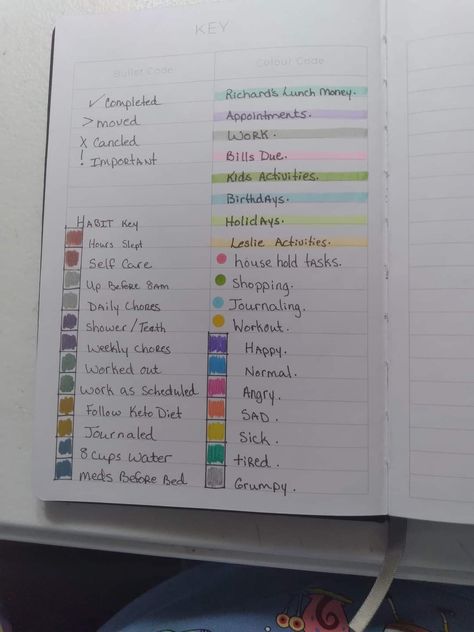 KEY
Bullet Code
✓ Completed
> moved
X Cancled
! Important
Habit Key
Hours Slept
Self Care
Up Before 8am
Daily Chores
Shower/Teeth
Weekly Chores
Worked out
Work as Scheduled
Follow Keto Diet
Journaled
8 Cups Water
Meds Before Bed
Colour Code
Richard's Lunch Money.
Appointments.
Work.
Bills Due.
Kids Activities.
Birthdays.
Holidays.
Leslie Activities.
house hold tasks.
Shopping.
Journaling.
Workout.
Happy.
Normal.
Angry.
SAD.
Sick.
tired.
Grumpy.